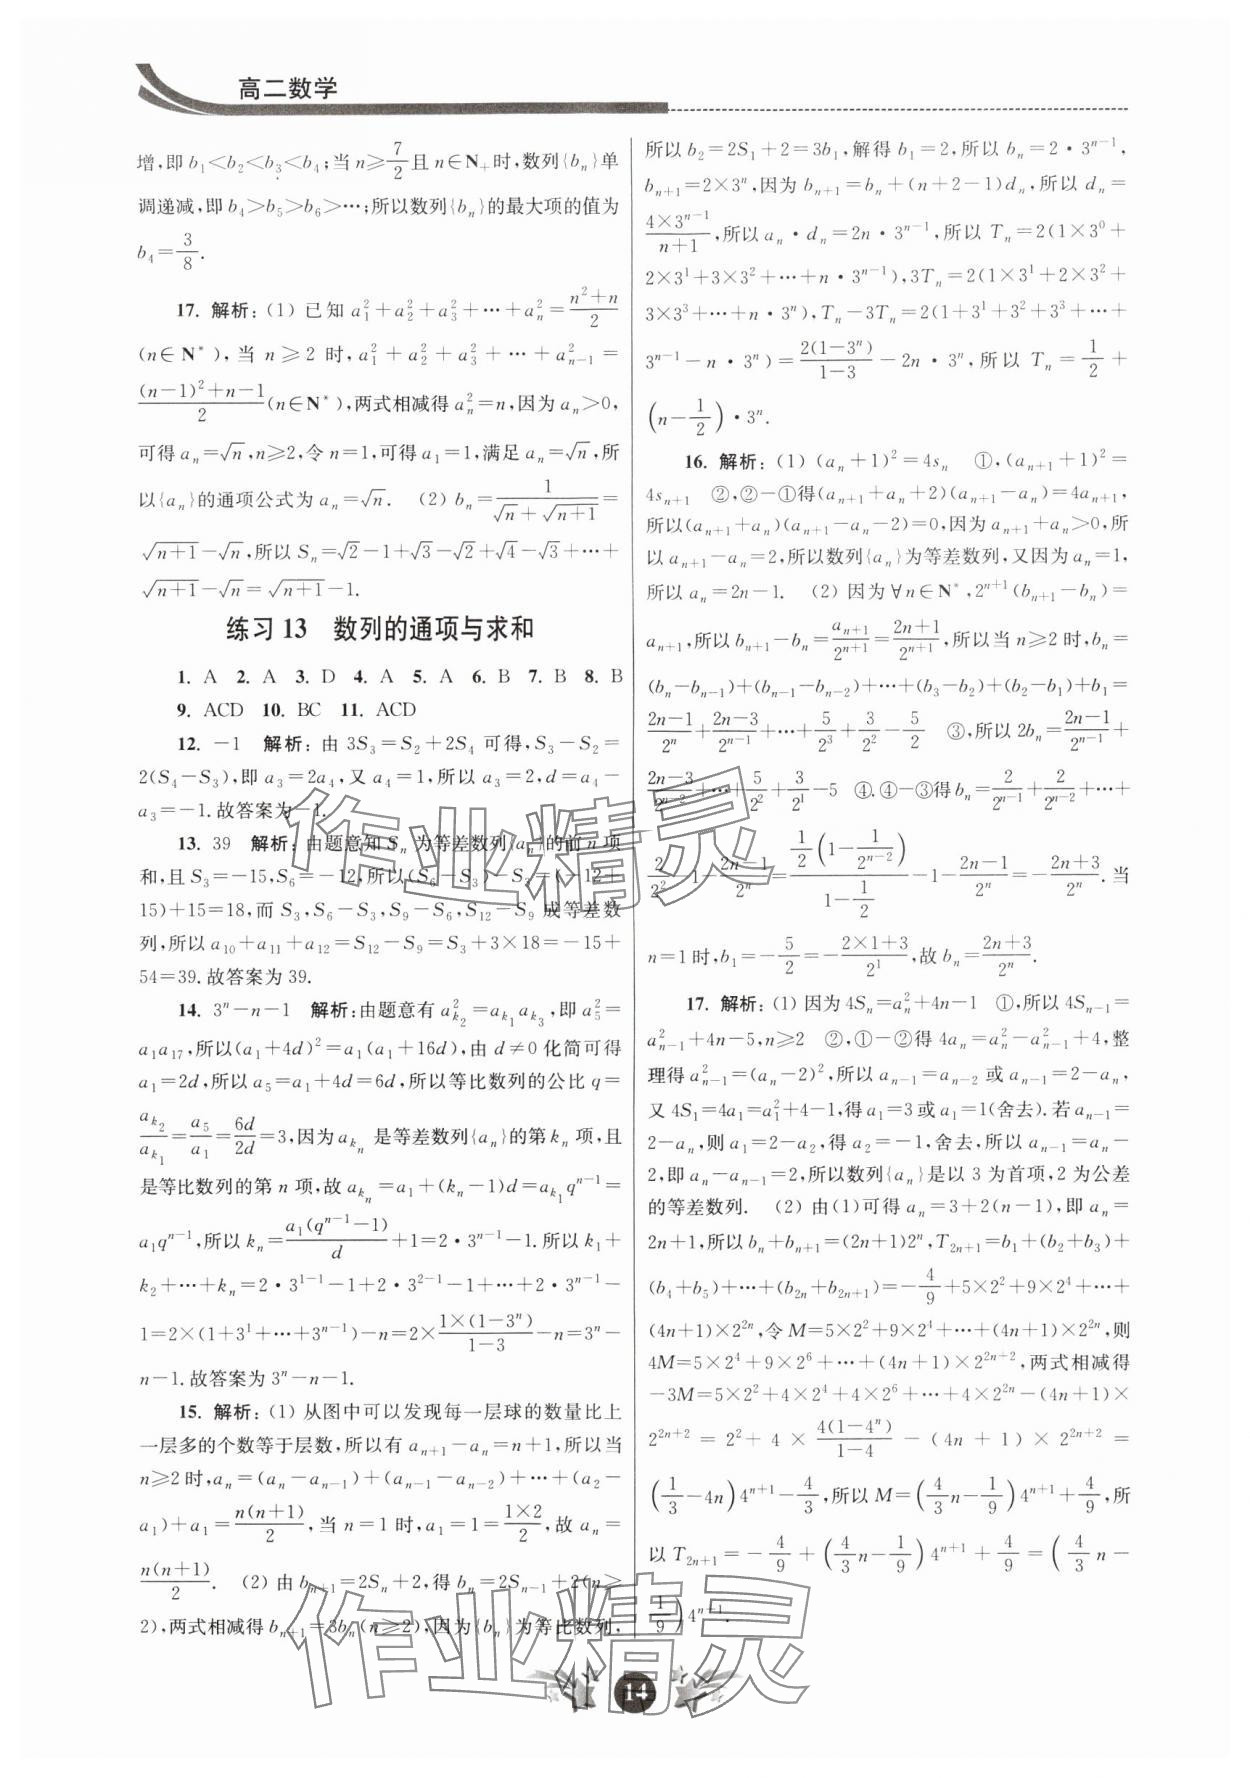 高二数学
增,即 b₁<b₂<b₃<b₄;当 n≥7/2 且 n∈N₊时,数列{bₙ}单
调递减,即 b₄>b₅>b₆>…;所以数列{bₙ}的最大项的值为
b₄=3/8.
17. 解析:(1) 已知 a₁²+a₂²+a₃²+…+aₙ²=(n²+n)/2
(n∈N*),当 n≥2 时,a₁²+a₂²+a₃²+…+aₙ₋₁²=
((n-1)²+n-1)/2(n∈N*),两式相减得 aₙ²=n,因为 aₙ>0,
可得 aₙ=√n,n≥2,令 n=1,可得 a₁=1,满足 aₙ=√n,所
以{aₙ}的通项公式为 aₙ=√n. (2) bₙ=1/(√n+√(n+1))=
√(n+1)-√n,所以 Sₙ=√2-1+√3-√2+√4-√3+…+
√(n+1)-√n=√(n+1)-1.
练习 13 数列的通项与求和
1. A 2. A 3. D 4. A 5. A 6. B 7. B 8. B
9. ACD 10. BC 11. ACD
12. -1 解析:由 3S₃=S₂+2S₄ 可得,S₃-S₂=
2(S₄-S₃),即 a₃=2a₄,又 a₄=1,所以 a₃=2,d=a₄-
a₃=-1.故答案为-1.
13. 39 解析:由题意知 Sₙ 为等差数列{aₙ}的前 n 项
和,且 S₃=-15,S₆=-12,所以(S₆-S₃)-S₃=(-12+
15)+15=18,而 S₃,S₆-S₃,S₉-S₆,S₁₂-S₉ 成等差数
列,所以 a₁₀+a₁₁+a₁₂=S₁₂-S₉=S₃+3×18=-15+
54=39.故答案为 39.
14. 3ⁿ-n-1 解析:由题意有 a_{k₂}²=a_{k₁}a_{k₃},即 a₅²=
a₁a₁₇,所以(a₁+4d)²=a₁(a₁+16d),由 d≠0 化简可得
a₁=2d,所以 a₅=a₁+4d=6d,所以等比数列的公比 q=
a_{k₂}/a_{k₁}=a₅/a₁=6d/2d=3,因为 a_{kₙ} 是等差数列{aₙ}的第 kₙ 项,且
是等比数列的第 n 项,故 a_{kₙ}=a₁+(kₙ-1)d=a_{k₁}qⁿ⁻¹=
a₁qⁿ⁻¹,所以 kₙ=a₁(qⁿ⁻¹-1)/d+1=2·3ⁿ⁻¹-1.所以 k₁+
k₂+…+kₙ=2·3¹⁻¹-1+2·3²⁻¹-1+…+2·3ⁿ⁻¹-
1=2×(1+3¹+…+3ⁿ⁻¹)-n=2×(1×(1-3ⁿ))/(1-3)-n=3ⁿ-
n-1.故答案为 3ⁿ-n-1.
15. 解析:(1) 从图中可以发现每一层球的数量比上
一层多的个数等于层数,所以有 aₙ₊₁-aₙ=n+1,所以当
n≥2 时,aₙ=(aₙ-aₙ₋₁)+(aₙ₋₁-aₙ₋₂)+…+(a₂-
a₁)+a₁=n(n+1)/2,当 n=1 时,a₁=1=(1×2)/2,故 aₙ=
n(n+1)/2. (2) 由 bₙ₊₁=2Sₙ+2,得 bₙ=2Sₙ₋₁+2(n≥
2),两式相减得 bₙ₊₁=3bₙ(n≥2),因为{bₙ}为等比数列,
所以 b₂=2S₁+2=3b₁,解得 b₁=2,所以 bₙ=2·3ⁿ⁻¹,
bₙ₊₁=2×3ⁿ,因为 bₙ₊₁=bₙ+(n+2-1)dₙ,所以 dₙ=
(4×3ⁿ⁻¹)/(n+1),所以 aₙ·dₙ=2n·3ⁿ⁻¹,所以 Tₙ=2(1×3⁰+
2×3¹+3×3²+…+n·3ⁿ⁻¹),3Tₙ=2(1×3¹+2×3²+
3×3³+…+n·3ⁿ),Tₙ-3Tₙ=2(1+3¹+3²+3³+…+
3ⁿ⁻¹-n·3ⁿ)=2(1-3ⁿ)/(1-3)-2n·3ⁿ,所以 Tₙ=1/2+
(n-1/2)·3ⁿ.
16. 解析:(1) (aₙ+1)²=4sₙ ①,(aₙ₊₁+1)²=
4sₙ₊₁ ②,②-①得(aₙ₊₁+aₙ+2)(aₙ₊₁-aₙ)=4aₙ₊₁,
所以(aₙ₊₁+aₙ)(aₙ₊₁-aₙ-2)=0,因为 aₙ₊₁+aₙ>0,所
以 aₙ₊₁-aₙ=2,所以数列{aₙ}为等差数列,又因为 aₙ=1,
所以 aₙ=2n-1. (2) 因为∀n∈N*,2ⁿ⁺¹(bₙ₊₁-bₙ)=
aₙ₊₁,所以 bₙ₊₁-bₙ=aₙ₊₁/2ⁿ⁺¹=(2n+1)/2ⁿ⁺¹,所以当 n≥2 时,bₙ=
(bₙ-bₙ₋₁)+(bₙ₋₁-bₙ₋₂)+…+(b₃-b₂)+(b₂-b₁)+b₁=
(2n-1)/2ⁿ+(2n-3)/2ⁿ⁻¹+…+5/2³+3/2²-5/2 ③,所以 2bₙ=(2n-1)/2ⁿ⁻¹+
(2n-3)/2ⁿ⁻²+…+5/2²+3/2¹-5 ④.④-③得 bₙ=2/2ⁿ⁻¹+2/2ⁿ⁻²+…+
2/2²-1-(2n-1)/2ⁿ=(1/2(1-1/2ⁿ⁻²))/(1-1/2)-1-(2n-1)/2ⁿ=-(2n+3)/2ⁿ.当
n=1 时,b₁=-5/2=-(2×1+3)/2¹,故 bₙ=(2n+3)/2ⁿ.
17. 解析:(1) 因为 4Sₙ=aₙ²+4n-1 ①,所以 4Sₙ₋₁=
aₙ₋₁²+4n-5,n≥2 ②,①-②得 4aₙ=aₙ²-aₙ₋₁²+4,整
理得 aₙ₋₁²=(aₙ-2)²,所以 aₙ₋₁=aₙ₋₂ 或 aₙ₋₁=2-aₙ,
又 4S₁=4a₁=a₁²+4-1,得 a₁=3 或 a₁=1(舍去).若 aₙ₋₁=
2-aₙ,则 a₁=2-a₂,得 a₂=-1,舍去,所以 aₙ₋₁=aₙ-
2,即 aₙ-aₙ₋₁=2,所以数列{aₙ}是以 3 为首项,2 为公差
的等差数列. (2) 由(1)可得 aₙ=3+2(n-1),即 aₙ=
2n+1,所以 bₙ+bₙ₊₁=(2n+1)2ⁿ,T₂ₙ₊₁=b₁+(b₂+b₃)+
(b₄+b₅)+…+(b₂ₙ+b₂ₙ₊₁)=-4/9+5×2²+9×2⁴+…+
(4n+1)×2²ⁿ,令 M=5×2²+9×2⁴+…+(4n+1)×2²ⁿ,则
4M=5×2⁴+9×2⁶+…+(4n+1)×2²ⁿ⁺²,两式相减得
-3M=5×2²+4×2⁴+4×2⁶+…+4×2²ⁿ-(4n+1)×
2²ⁿ⁺²=2²+4×4(1-4ⁿ)/(1-4)-(4n+1)×2²ⁿ⁺²=
(1/3-4n)4ⁿ⁺¹-4/3,所以 M=(4/3n-1/9)4ⁿ⁺¹+4/9,所
以 T₂ₙ₊₁=-4/9+(4/3n-1/9)4ⁿ⁺¹+4/9=(4/3n-
1/9)4ⁿ⁺¹.
作业精灵
作业精灵
14